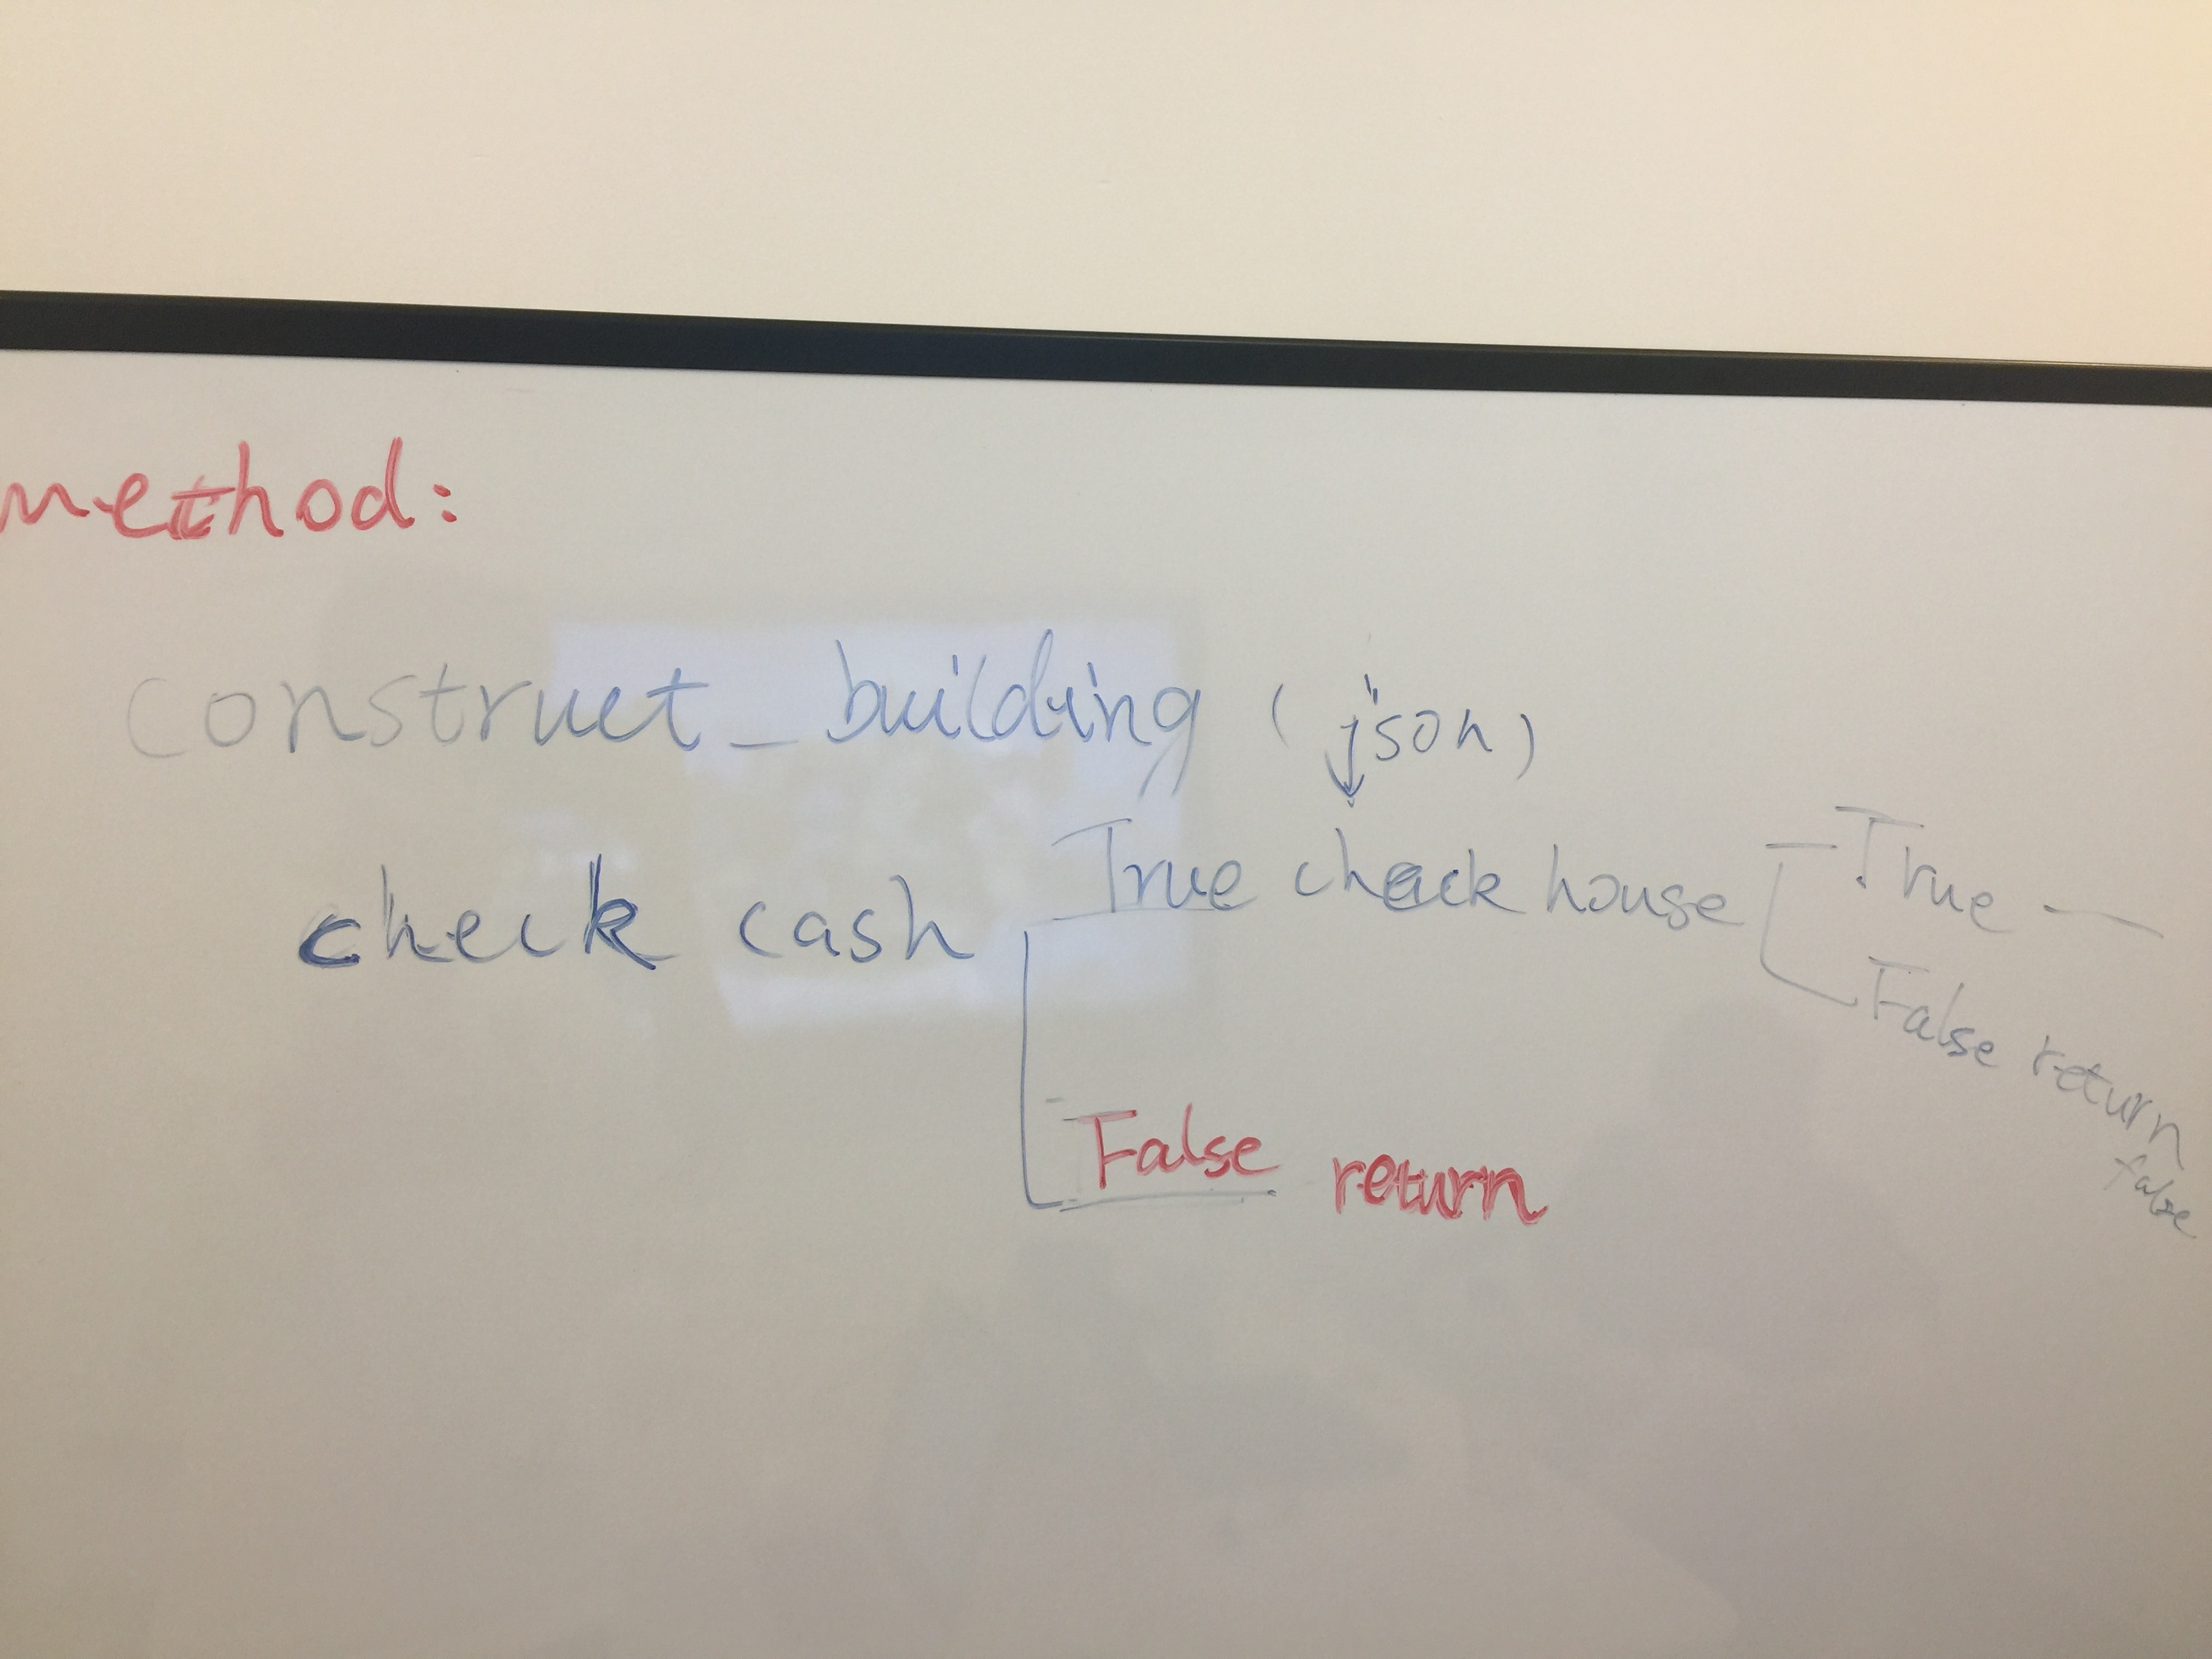 method:
construct_building (json)
check cash True check house True
False return false
False return